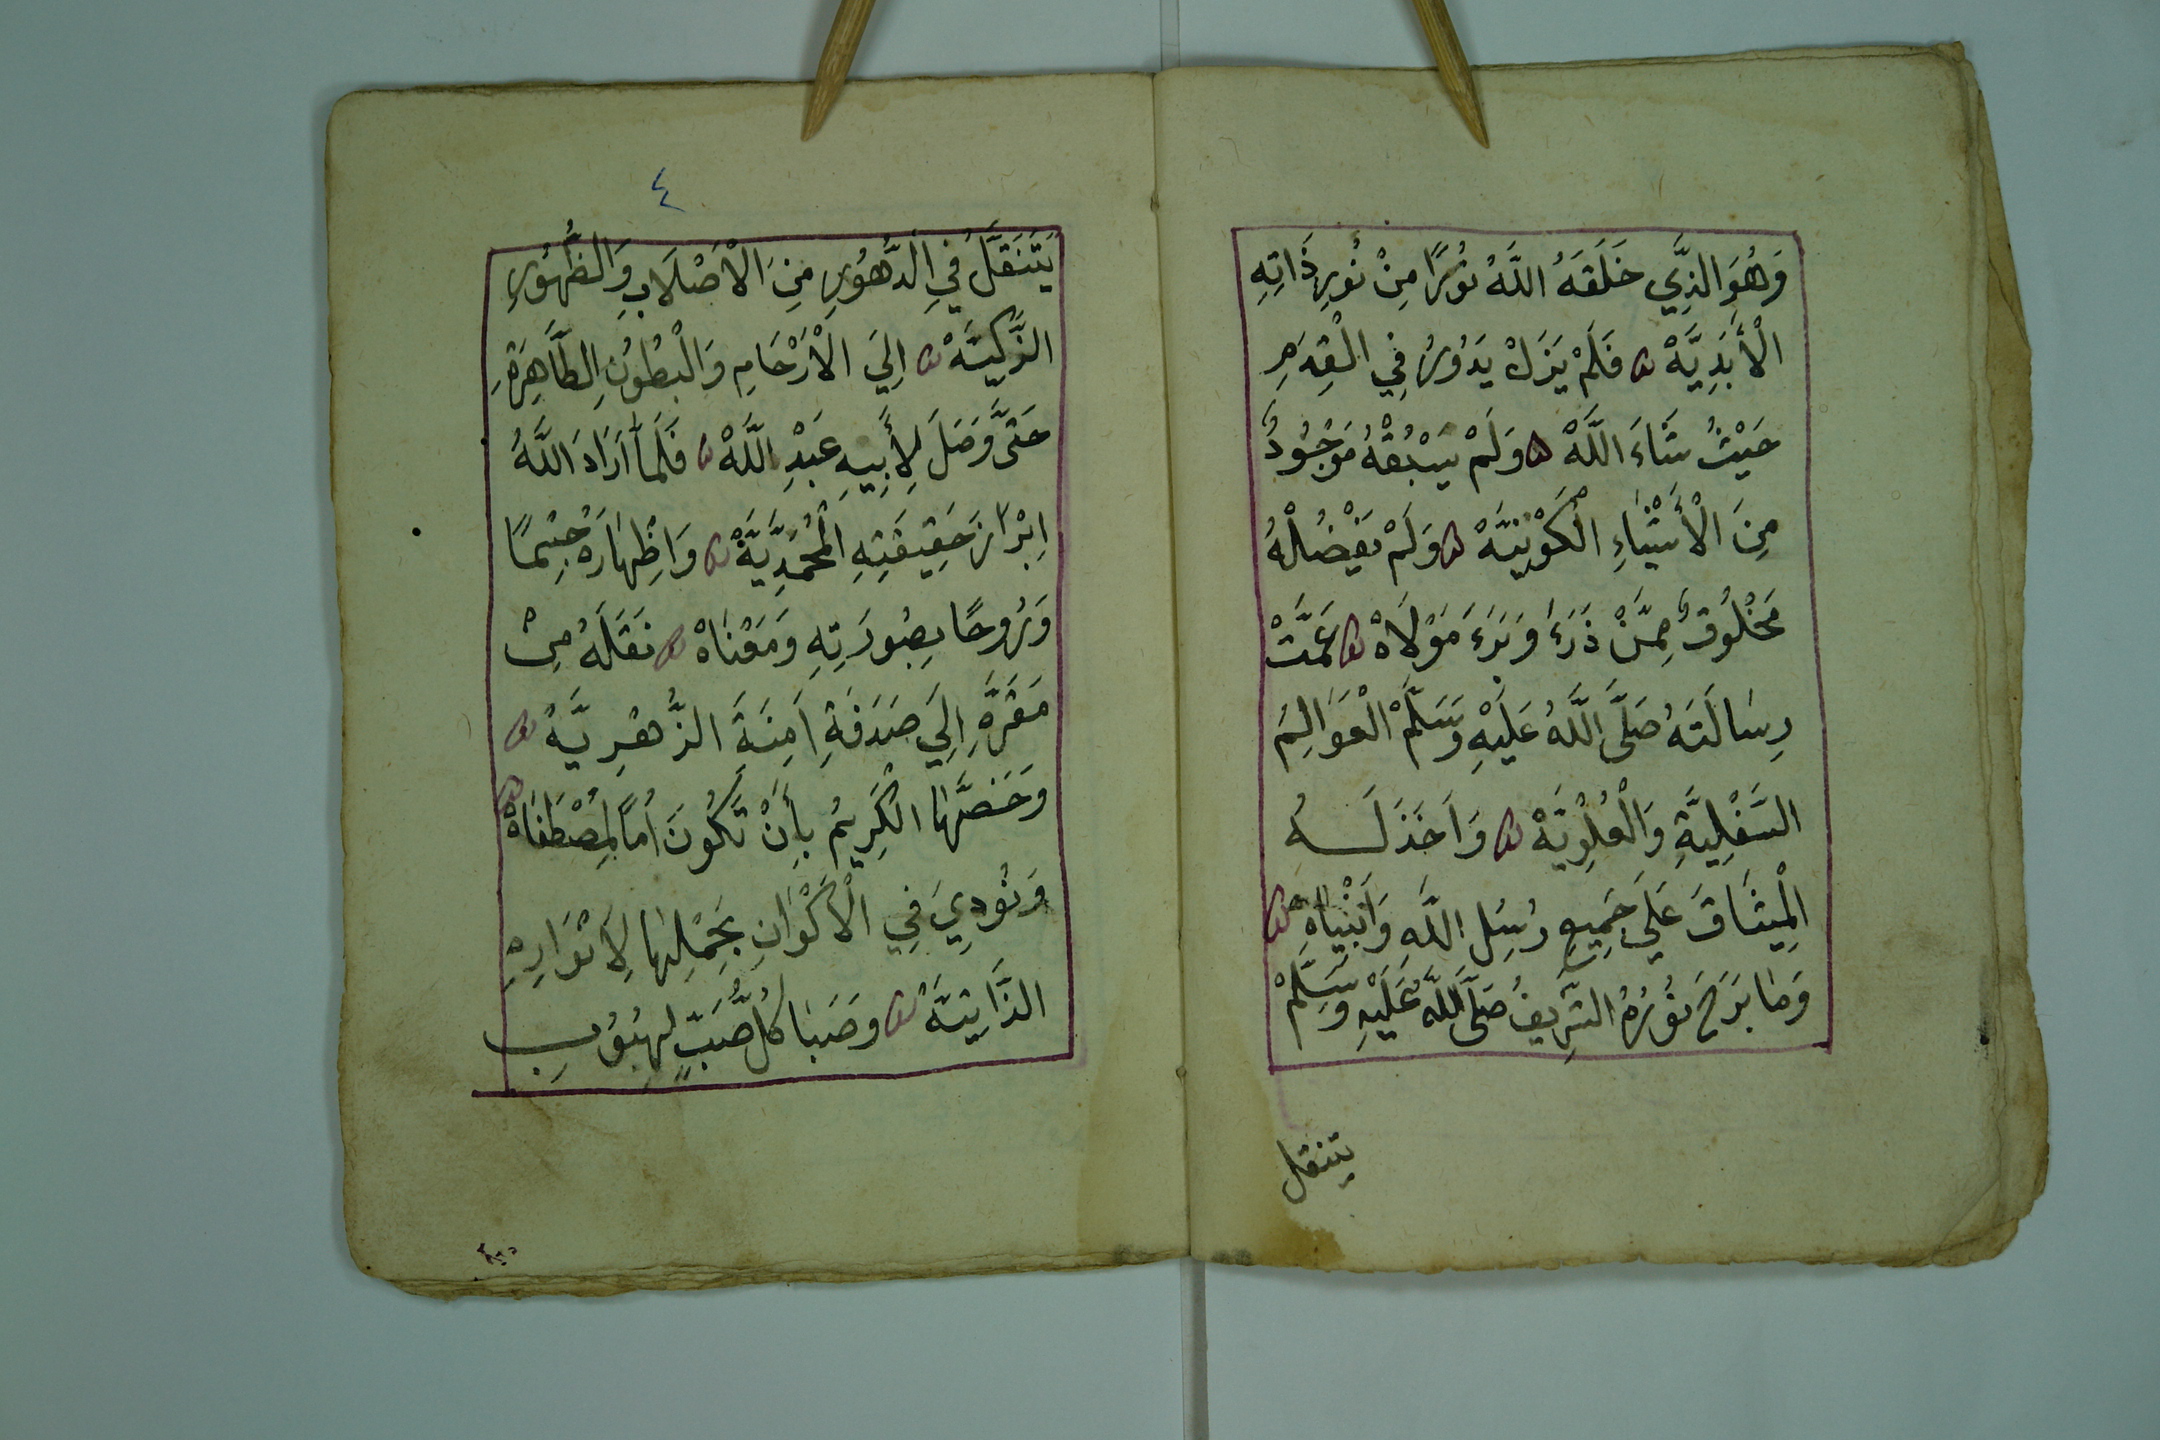 وَهُوَ الذِّي خَلَقَهُ اللَّهُ نُورًا مِنْ نُورِ ذَاتِهِ
الْأَبَدِيَّهْ فَلَمْ يَزَلْ يَدُورُ فِي
حَيْثُ شَاءَ اللَّهْ وَلَمْ يَسْبُقْهُ مَوْجُودٌ
مِنَ الْأَشْيَاءِ الْكَوْنِيَّهْ وَلَمْ يَفْضُلْهُ
مَخْلُوقٌ مِمَّنْ ذَرَءَ وَبَرَءَ مَوْلَاهْ عَمَّتْ
رِسَالَتَهُ صَلَّى اللَّهُ عَلَيْهِ وَسَلَّمْ الْعَوَالِمَ
السَّفْلِيَّةِ وَالْعُلْوِيَّهْ وَاَخَذَ لَهُ
الْمِيثَاقَ عَلَي جَمِيعِ رُسِلِ اللَّهِ وَاَنْبْيَاهِ
وَمَا بَرَحَ نُورُهُ الشَّرِيفُ صَلَّى اللَّهُ عَلَيْهِ وَسَلَّمْ
يتنقل
٤
يَتَنَقَّلُ فِي الدُّهُورِ مِنَ الْاَصْلَابِ وَالظُّهُورِ
الزَّكِيَّهْ اِلَي الْاَرْحَامِ وَالْبُطُونِ الطَّاهِرَةِ
حَتَّى وَصَلَ لِأَبِيهِ عَبْدِ اللَّهْ فَلَمَّا اَرَادَ اللَّهُ
اِبْرَازَ حَقِيقَتِهِ الْمُحَمَّدِيَّهْ وَاِظْهَارَهُ جِسْمًا
وَرُوحًا بِصُورَتِهِ وَمَعْنَاهْ نَقَلَهُ مِنْ
مَقَرَّهِ اِلَي صَدَفَةِ اَمِنَةَ الزُّهْرِيَّهْ
وَخَصَّهَا الْكَرِيمُ بِأَنْ تَكُونَ اُمًا لِمُصْطَفَاهْ
وَنُودِيَ فِي الْاَكْوَانِ بَحَمْلِهَا لِاَنْوَارِهِ
الذَّاتِيَّهْ وَصَبَا كُلُّ صَّبٍّ لِهُبُوبِ